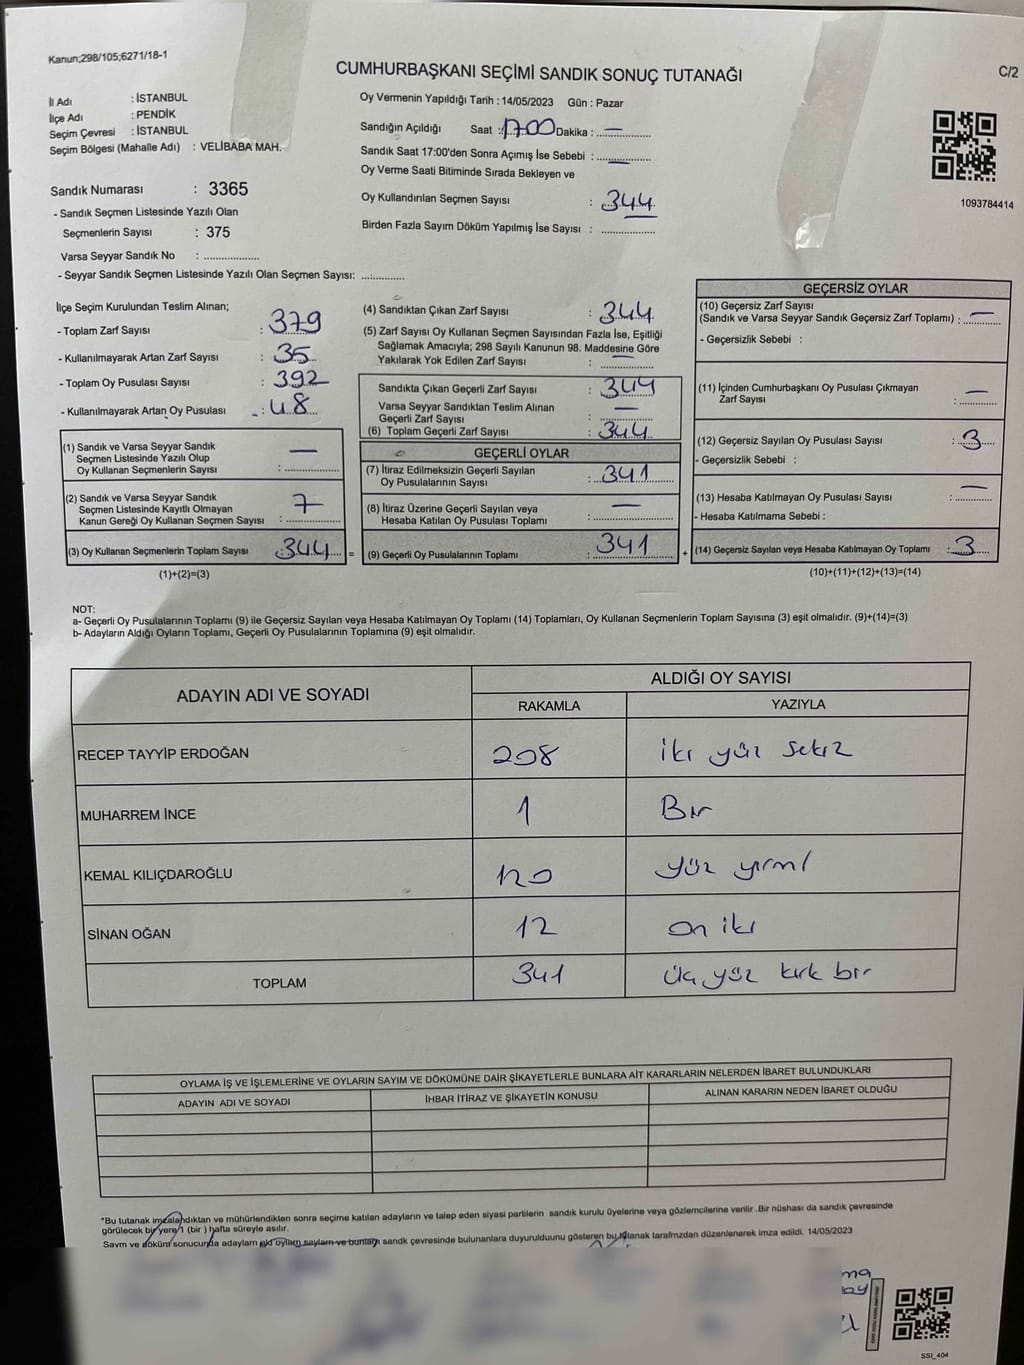 Kanun;298/105;6271/18-1
CUMHURBAŞKANI SEÇİMİ SANDIK SONUÇ TUTANAĞI
C/2
İl Adı : İSTANBUL
İlçe Adı : PENDİK
Seçim Çevresi : İSTANBUL
Seçim Bölgesi (Mahalle Adı) : VELİBABA MAH.
Sandık Numarası : 3365
- Sandık Seçmen Listesinde Yazılı Olan
Seçmenlerin Sayısı : 375
Varsa Seyyar Sandık No : ...................
- Seyyar Sandık Seçmen Listesinde Yazılı Olan Seçmen Sayısı: ...............
Oy Vermenin Yapıldığı Tarih : 14/05/2023 Gün : Pazar
Sandığın Açıldığı Saat : 17.00 Dakika : —
Sandık Saat 17:00'den Sonra Açımış İse Sebebi : —
Oy Verme Saati Bitiminde Sırada Bekleyen ve
Oy Kullandırılan Seçmen Sayısı : 344
Birden Fazla Sayım Döküm Yapılmış İse Sayısı : ...................
1093784414
İlçe Seçim Kurulundan Teslim Alınan;
- Toplam Zarf Sayısı : 379
- Kullanılmayarak Artan Zarf Sayısı : 35
- Toplam Oy Pusulası Sayısı : 392
- Kullanılmayarak Artan Oy Pusulası : 48
(1) Sandık ve Varsa Seyyar Sandık
Seçmen Listesinde Yazılı Olup
Oy Kullanan Seçmenlerin Sayısı : —
(2) Sandık ve Varsa Seyyar Sandık
Seçmen Listesinde Kayıtlı Olmayan
Kanun Gereği Oy Kullanan Seçmen Sayısı : 7
(3) Oy Kullanan Seçmenlerin Toplam Sayısı : 344 =
(1)+(2)=(3)
(4) Sandıktan Çıkan Zarf Sayısı : 344
(5) Zarf Sayısı Oy Kullanan Seçmen Sayısından Fazla İse, Eşitliği
Sağlamak Amacıyla; 298 Sayılı Kanunun 98. Maddesine Göre
Yakılarak Yok Edilen Zarf Sayısı : —
Sandıkta Çıkan Geçerli Zarf Sayısı : 344
Varsa Seyyar Sandıktan Teslim Alınan
Geçerli Zarf Sayısı : —
(6) Toplam Geçerli Zarf Sayısı : 344
GEÇERLİ OYLAR
(7) İtiraz Edilmeksizin Geçerli Sayılan
Oy Pusulalarının Sayısı : 341
(8) İtiraz Üzerine Geçerli Sayılan veya
Hesaba Katılan Oy Pusulası Toplamı : —
(9) Geçerli Oy Pusulalarının Toplamı : 341 +
GEÇERSİZ OYLAR
(10) Geçersiz Zarf Sayısı
(Sandık ve Varsa Seyyar Sandık Geçersiz Zarf Toplamı) : —
- Geçersizlik Sebebi :
(11) İçinden Cumhurbaşkanı Oy Pusulası Çıkmayan
Zarf Sayısı : —
(12) Geçersiz Sayılan Oy Pusulası Sayısı : 3
- Geçersizlik Sebebi :
(13) Hesaba Katılmayan Oy Pusulası Sayısı : —
- Hesaba Katılmama Sebebi :
(14) Geçersiz Sayılan veya Hesaba Katılmayan Oy Toplamı : 3
(10)+(11)+(12)+(13)=(14)
NOT:
a- Geçerli Oy Pusulalarının Toplamı (9) ile Geçersiz Sayılan veya Hesaba Katılmayan Oy Toplamı (14) Toplamları, Oy Kullanan Seçmenlerin Toplam Sayısına (3) eşit olmalıdır. (9)+(14)=(3)
b- Adayların Aldığı Oyların Toplamı, Geçerli Oy Pusulalarının Toplamına (9) eşit olmalıdır.
ADAYIN ADI VE SOYADI
ALDIĞI OY SAYISI
RAKAMLA YAZIYLA
RECEP TAYYİP ERDOĞAN 208 iki yüz sekiz
MUHARREM İNCE 1 Bir
KEMAL KILIÇDAROĞLU 120 yüz yirmi
SİNAN OĞAN 12 on iki
TOPLAM 341 üç yüz kırk bir
OYLAMA İŞ VE İŞLEMLERİNE VE OYLARIN SAYIM VE DÖKÜMÜNE DAİR ŞİKAYETLERLE BUNLARA AİT KARARLARIN NELERDEN İBARET BULUNDUKLARI
ADAYIN ADI VE SOYADI İHBAR İTİRAZ VE ŞİKAYETİN KONUSU ALINAN KARARIN NEDEN İBARET OLDUĞU
*Bu tutanak imzalandıktan ve mühürlendikten sonra seçime katılan adayların ve talep eden siyasi partilerin sandık kurulu üyelerine veya gözlemcilerine verilir .Bir nüshası da sandık çevresinde
görülecek bir yere 1 (bir ) hafta süreyle asılır.
Sayım ve döküm sonucunda adayların sandk çevresinde bulunanlara duyurulduunu gösteren bu tutanak tarafmzdan düzenlenerek imza edildi. 14/05/2023
SSI_404